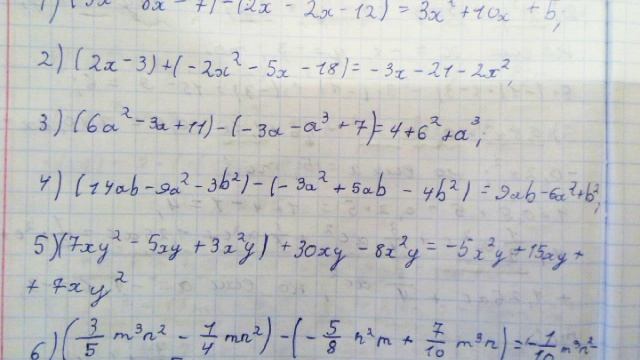 1) (5x² - 8x - 7) - (2x² - 2x - 12) = 3x² + 10x + 5;
2) (2x-3)+(-2x² - 5x - 18) = -3x - 21 - 2x²;
3) (6a² - 3a + 11) - (-3a - a³ + 7) = 4 + 6² + a³;
4) (14ab - 9a² - 3b²) - (-3a² + 5ab - 4b²) = 9ab - 6a² + b²;
5) (7xy² - 5xy + 3x²y) + 30xy - 8x²y = -5x²y + 15xy +
+ 7xy²
6) (3/5 m³n² - 1/4 mn²) - (-5/8 n²m + 7/10 m³n) = -1/10 m³n²